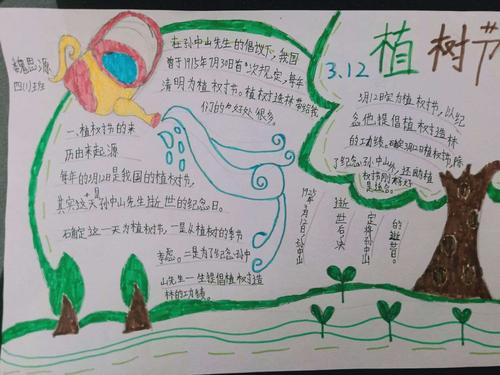 魏思源
四(1)班
3.12 植树节
在孙中山先生的倡议下,我国
曾于1915年7月30日首次规定,每年
清明为植树节。植树造林带给我
们的好处很多。
3月12日定为植树节,以纪
念他提倡植树造林
的功绩。确定3月12日植树节,除
了纪念孙中山外,还明植
树节刚
是适合。
一、植树节的来
历由来起源
每年的3月12日是我国的植树节,
其实这天是孙中山先生逝世的纪念日。
确定这一天为植树节,一是从植树的季节
考虑。二是为了纪念孙中
山先生一生提倡植树造
林的功绩。
1925年3月12日孙中山
逝世后,决
定将孙中山
的逝世日。